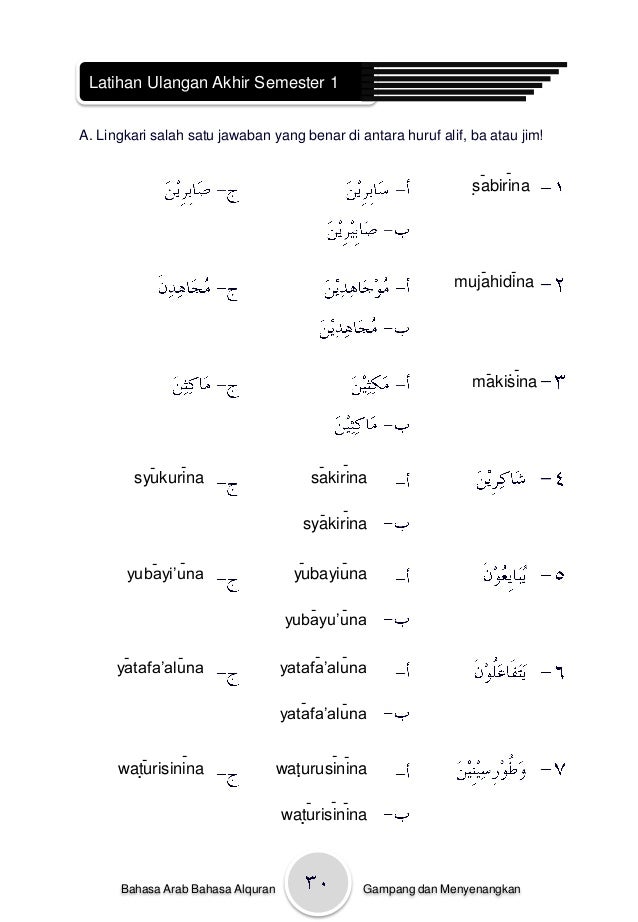 Latihan Ulangan Akhir Semester 1
A. Lingkari salah satu jawaban yang benar di antara huruf alif, ba atau jim!
١ – ṣābirīna أ – سَابِرِيْنَ ج – صَابِرِيْنَ
ب – صَابِيْرِيْنَ
٢ – mujāhidīna أ – مُوْجَاهِدِيْنَ ج – مُجَاهِدِنَ
ب – مُجَاهِدِيْنَ
٣ – mākiṡīna أ – مَكِثِيْنَ ج – مَاكِثِنَ
ب – مَاكِثِيْنَ
٤ – شَاكِرِيْنَ أ – sākirīna ج – syūkurīna
ب – syākirīna
٥ – يُبَايِعُوْنَ أ – yūbayiūna ج – yubāyi’ūna
ب – yubāyu’ūna
٦ – يَتَفَاعَلُوْنَ أ – yatafā’alūna ج – yātafa’alūna
ب – yatāfa’alūna
٧ – وَطُوْرِسِيْنِيْنَ أ – waṭurusīnīna ج – waṭūrisinīna
ب – waṭūrisīnīna
Bahasa Arab Bahasa Alquran ٣٠ Gampang dan Menyenangkan